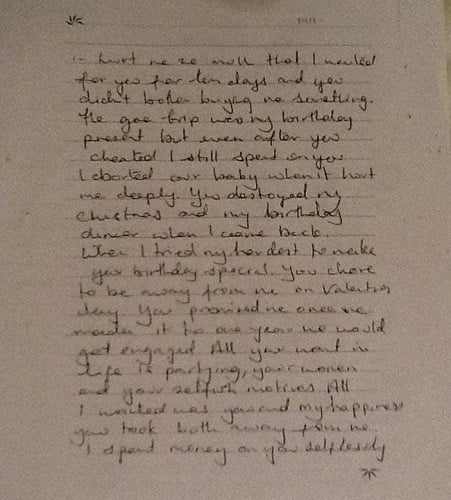 hurt me so much that I waited
for you for ten days and you
didn't bother buying me something.
The goa trip was my birthday
present but even after you
cheated I still spent on you
I aborted our baby when it hurt
me deeply. You destroyed my
christmas and my birthday
dinner when I came back.
When I tried my hardest to make
your birthday special. You chose
to be away from me on Valentines
day. You promised me once we
made it to one year we would
get engaged. All you want in
life is partying, your women
and your selfish motives. All
I wanted was you and my happiness
you took both away from me.
I spent money on you selflessly